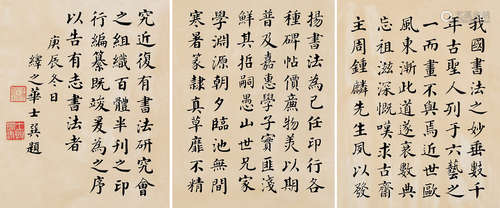 我國書法之妙垂數千
年古聖人列于六藝之
一而畫不與焉近世歐
風東漸此道遂衰數典
忘祖滋深慨嘆求古齋
主周鍾麟先生夙以發
揚書法為己任印行各
種碑帖價廉物美以期
普及嘉惠學子實匪淺
鮮其哲嗣愚山世兄家
學淵源朝夕臨池無間
寒暑篆隸真草靡不精
究近復有書法研究會
之組織百體半刊之印
行編纂既竣爰為之序
以告有志書法者
庚辰冬日
繹之華士巽題